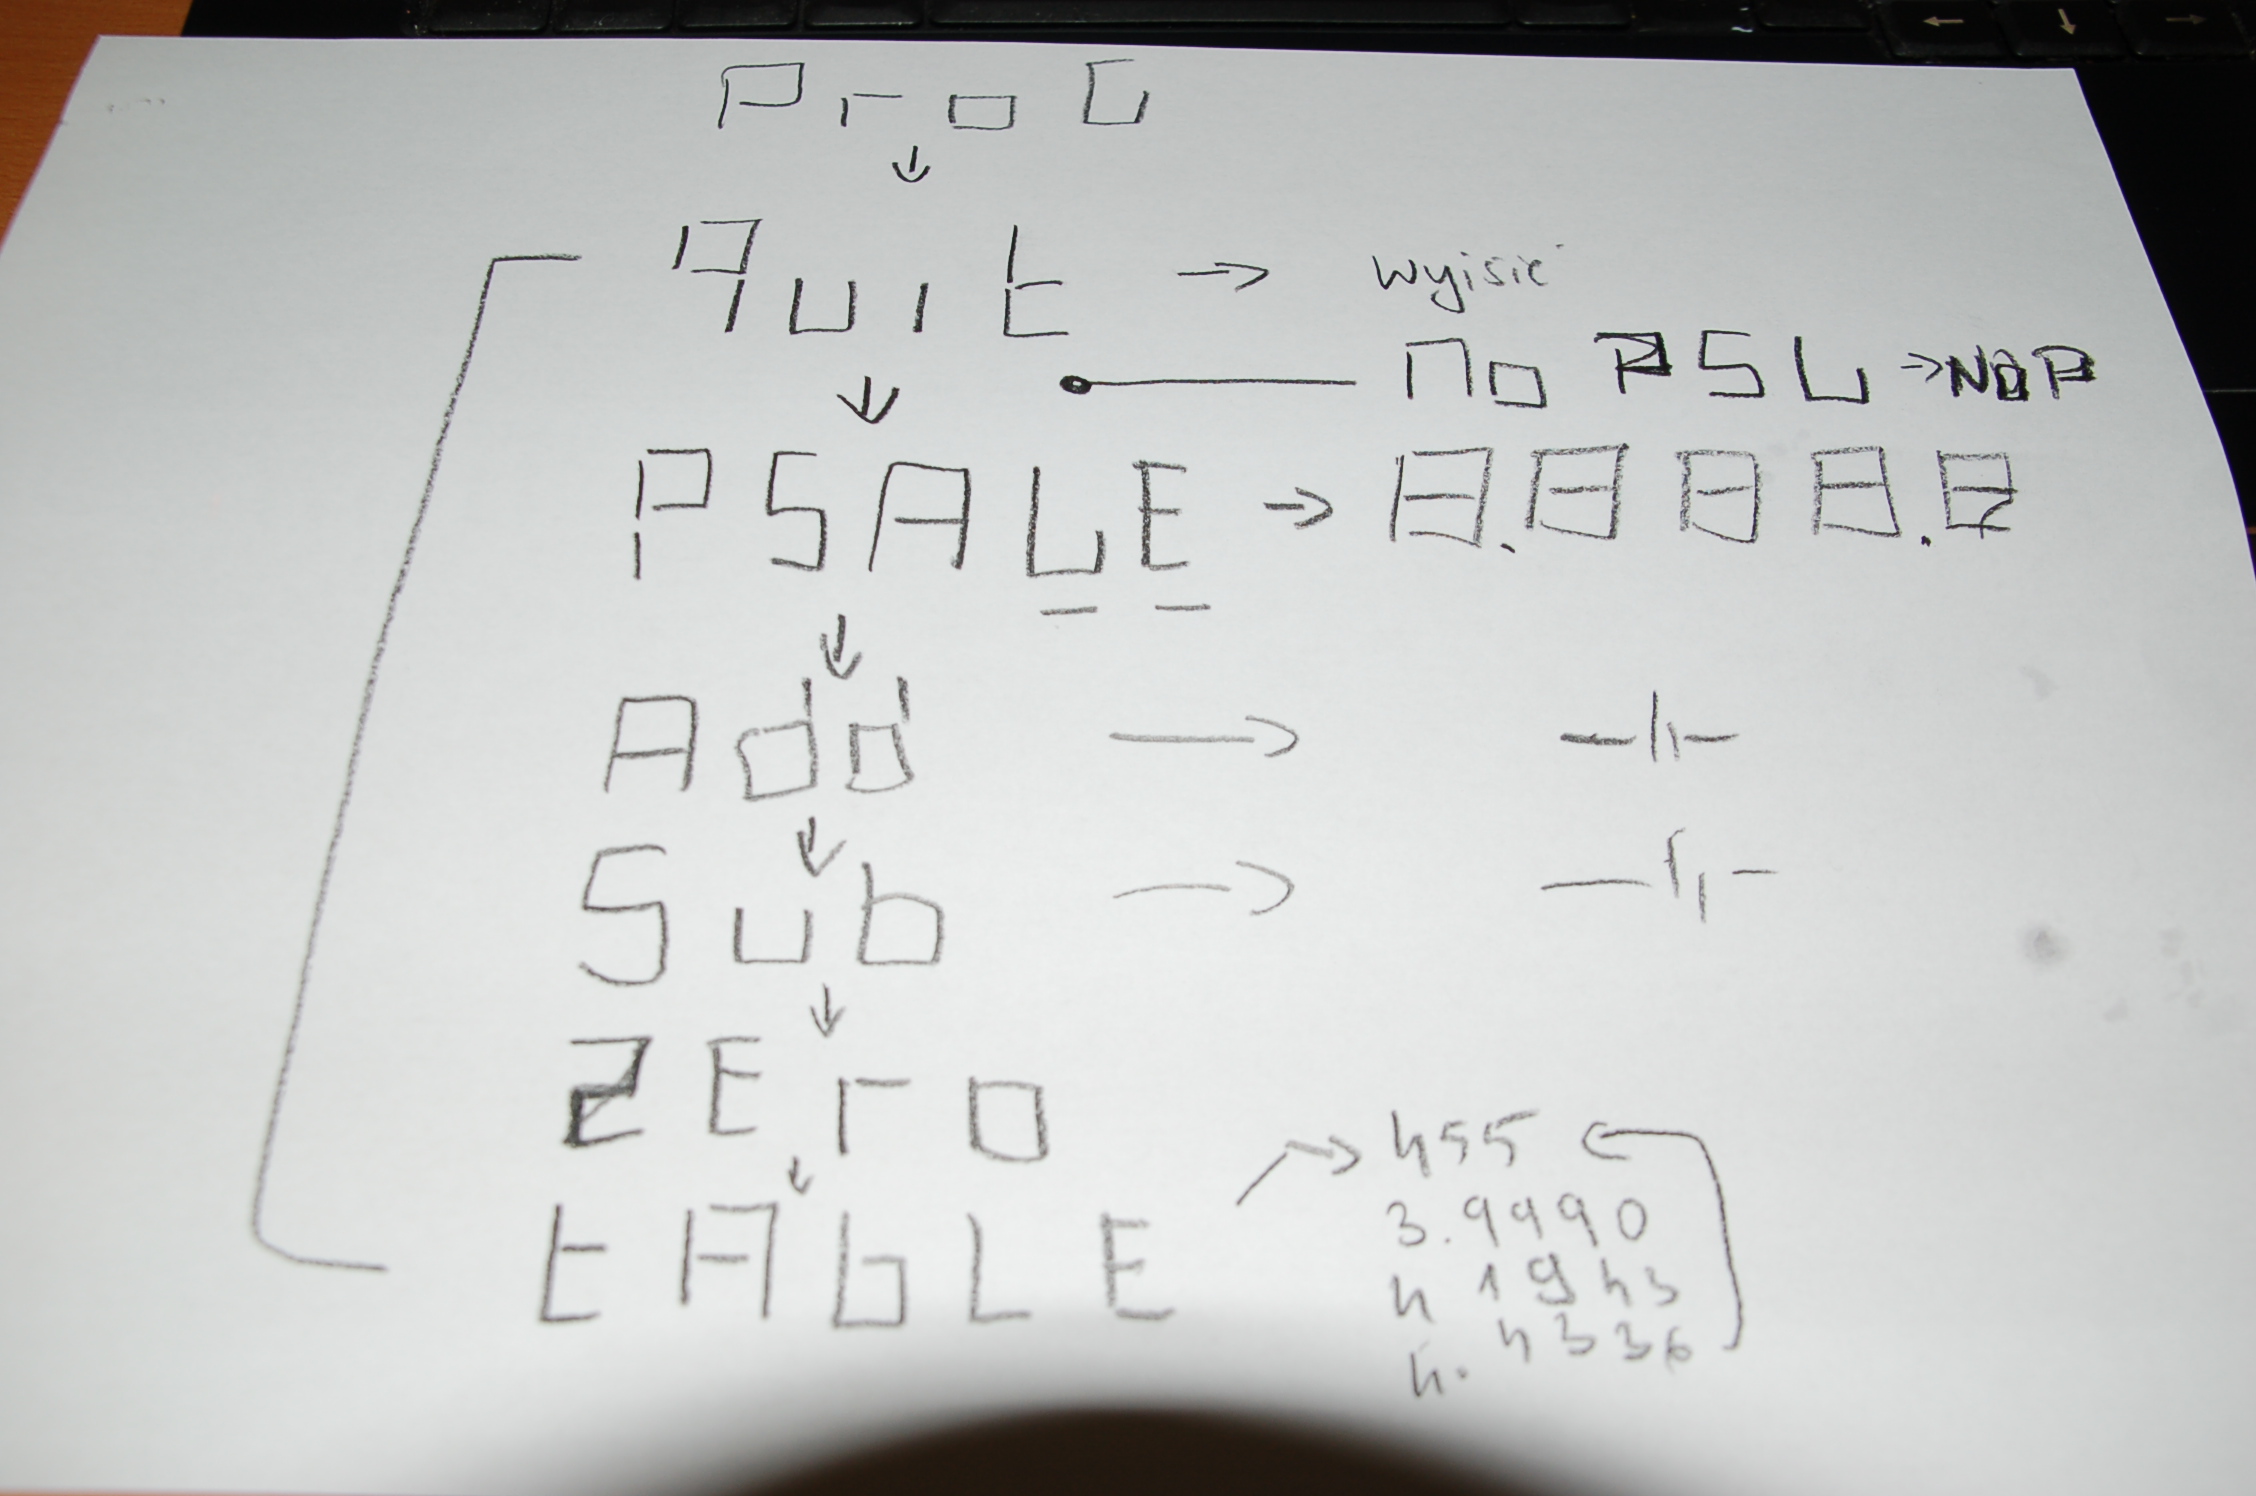 ProG
↓
quit → wyisić
↓ no PSL → NOP
PSALE → 8.888.8
↓
Add → -||-
↓
Sub → -||-
↓
ZEro
↓
tAbLE → 455
3.9990
4 1943
4.4336